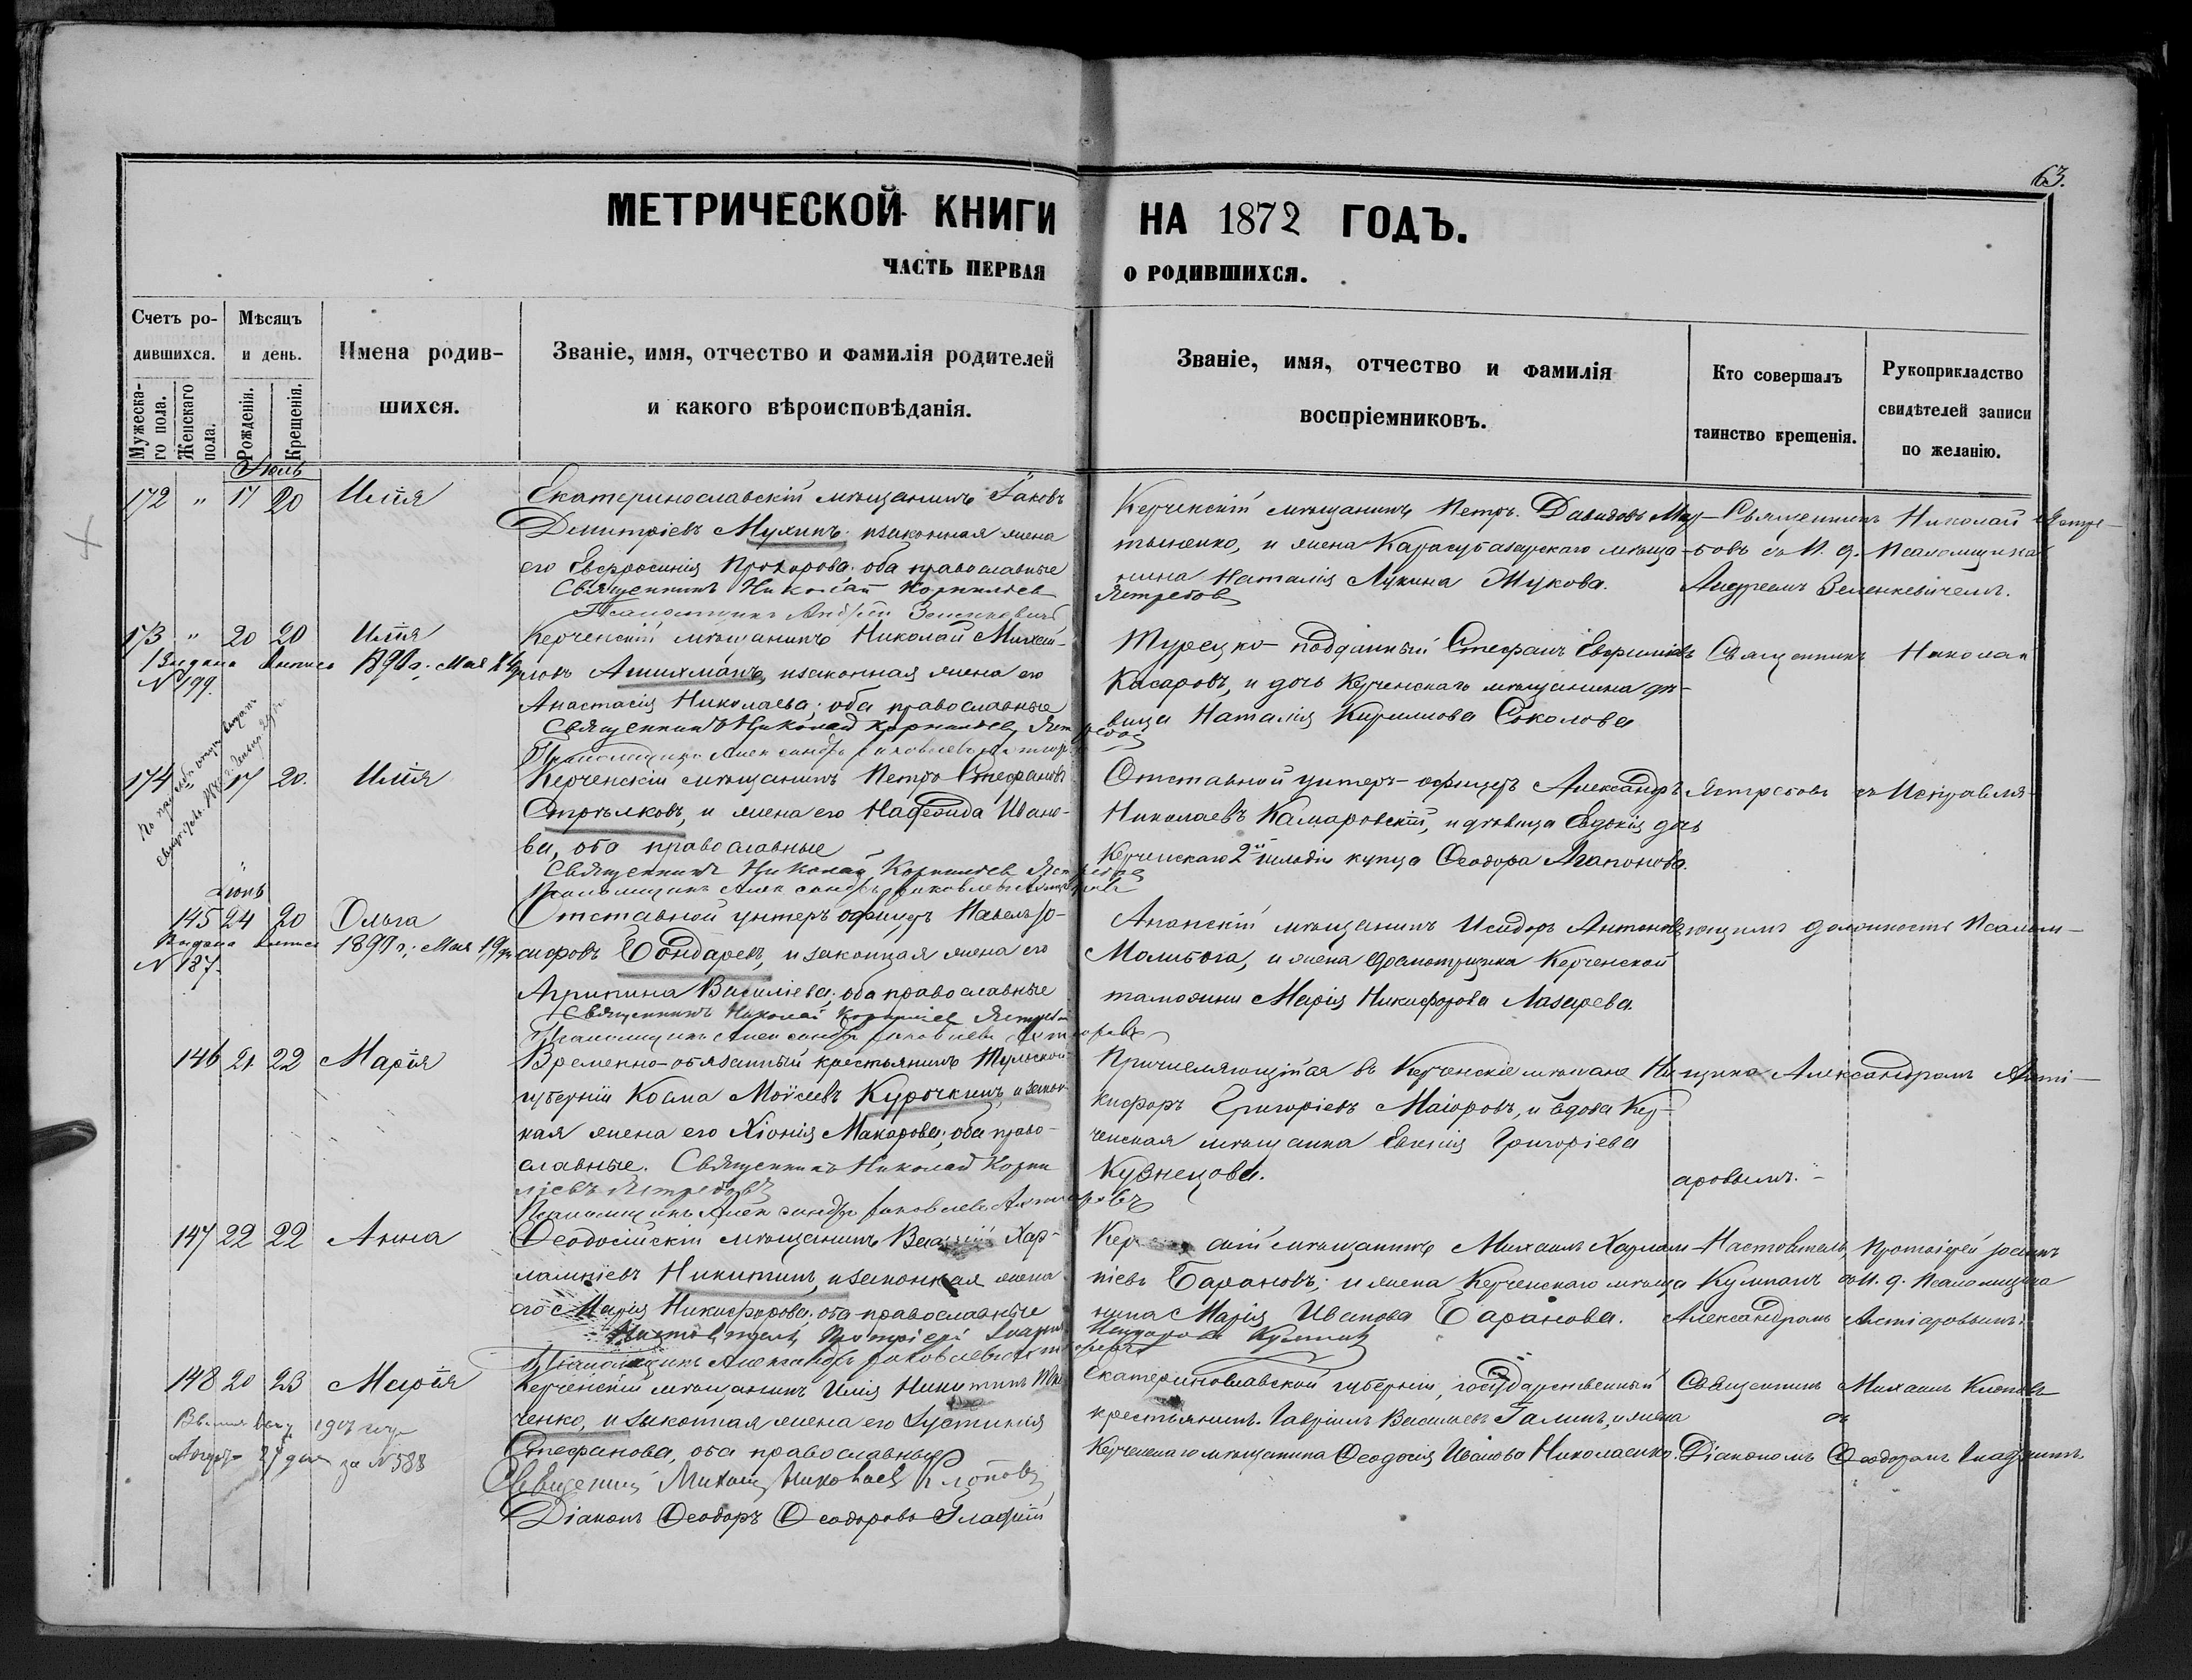 63.
МЕТРИЧЕСКОЙ КНИГИ НА 1872 ГОДЪ.
ЧАСТЬ ПЕРВАЯ О РОДИВШИХСЯ.
Счетъ ро-
дившихся.
Мужеска-
го пола.
Женскаго
пола.
Мѣсяцъ
и день.
Рожденія.
Крещенія.
Имена родив-
шихся.
Званіе, имя, отчество и фамилія родителей
и какого вѣроисповѣданія.
Званіе, имя, отчество и фамилія
воспріемниковъ.
Кто совершалъ
таинство крещенія.
Рукоприкладство
свидѣтелей записи
по желанію.
Іюль
172 " 17 20 Илія
Екатеринославскій мѣщанинъ Іаковъ
Димитріевъ Мухинъ, и законная жена
его Евфросинія Прохорова, оба православные
Священникъ Николай Корниліев
Ястребов
Псаломщикъ Андрей Зеленкевичъ
Керченскій мѣщанинъ Петръ Давидовъ
и жена Карасубазарскаго мѣща-
нина Наталія Лукина Жукова.
Священникъ Николай Ястре-
бовъ съ И. д. Псаломщика
Андреемъ Зеленкевичемъ.
173 " 20 20 Илія
Выдана выпись 1890 г. Мая
N 199.
Керченскій мѣщанинъ Николай Михай-
ловъ Ашихманъ, и законная жена его
Анастасія Николаева, оба православные
Священникъ Николай Корниліев Ястребов
Псаломщикъ Александръ Іаковлевъ
Турецко-подданный Стефанъ Евфиміовъ
Касаровъ, и дочь Керченскаго мѣщанина дѣ-
вица Наталія Кириллова Соколова
Священникъ Николай
174 " 17 20. Илія
Керченскій мѣщанинъ Петръ Стефановъ
Стрѣлковъ, и жена его Надежда Ивано-
ва, оба православные
Священникъ Николай Корниліев Ястребов
Псаломщикъ Александръ Іаковлевъ
Отставной унтеръ-офицеръ Александръ
Николаевъ Камаровскій, и дѣвица Евдокія дочь
Керченскаго 2й гильдіи купца Ѳеодора Агапонова.
Ястребовъ съ Исправля-
Іюнь
145 24 20 Ольга
Выдана выпись 1890 г. Мая 19 дн
N 187.
Отставной унтеръ офицеръ Павелъ Іо-
сифовъ Бондаревъ, и законная жена его
Агрипина Василіева, оба православные
Священникъ Николай Корниліев Ястребов
Псаломщикъ Александръ Іаковлевъ
Анапскій мѣщанинъ Исидоръ Антоновъ
и жена досмотрщика Керченской
таможни Марія Никифорова Лазарева.
ющимъ должность Псалом-
146 21 22 Марія
Временно-обязанный крестьянинъ Тульской
губерніи Косма Моѵсеевъ Курочкинъ, и закон-
ная жена его Хіонія Макарова, оба право-
славные. Священникъ Николай Корни
ліевъ Ястребовъ
Псаломщикъ Александръ Іаковлевъ
Причисляющійся въ Керченскіе мѣщане Ни-
кифоръ Григоріевъ Маіоровъ, и вдова Кер-
ченская мѣщанка Евгенія Григоріева
Кузнецова.
щика Александромъ
аровымъ.
147 22 22 Анна
Ѳеодосійскій мѣщанинъ Василій Хар-
лампіевъ Никитинъ, и законная жена
его Марія Никифорова, оба православные
Настоятель Протоіерей Іоаннъ
Псаломщикъ Александръ Іаковлевъ
мѣщанинъ Михаилъ Харлам-
піевъ Барановъ, и жена Керченскаго мѣща
нина Марія Иванова Баранова.
Настоятель Протоіерей Іоаннъ
съ И. д. Псаломщика
Александромъ
148 20 23 Марія
N 588
Керченскій мѣщанинъ Илія Никитинъ
ченко, и законная жена его Іустинія
Стефанова, оба православные
Священник Михаил Николаев Клопов
Діаконъ Ѳеодоръ Ѳеодоровъ Гладкій
Екатеринославской губерніи, государственный
крестьянинъ Гавріилъ Василіевъ Галинъ, и жена
Керченскаго мѣщанина Ѳеодосія Иванова Николаенко.
Священникъ Михаилъ Клоповъ
съ
Діакономъ Ѳеодоромъ Гладкимъ